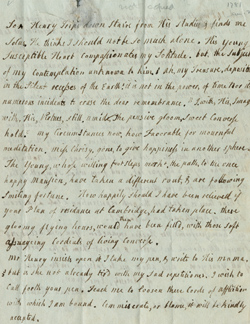 Son Henry trips down Stairs from His Studies & finds me
Solus. He thinks I should not be so much alone. His Young
Susceptible Heart Compassionates my Solitude. but the Subject
of my Contemplation unknown to him! Ah, my Treasure,
in the Silent recesses of the Earth! it is not in the power, of time
numerous incidents to erase the dear remembrance. I
with His, Notes, still, amidst the passive gloom, Sweet Converse
hold. my Circumstances now, how Favorable for mournful
meditation, nests, thrive, gone, to give happiness in another sphere.
The Young, whose willing footsteps mark, the path, to the once
happy Mansion, have taken a different rout, & are following
Smiling fortune. How happily should I have been relieved if
your Plan of residence at Cambridge, had taken place, these
gloomy flying hours, would have been filled, with those soft
asswaging Cordials of living Converse.
Mr Henry insists upon it I take my pen, & write to His Mama.
but is she not already tir'd with my Sad repetitions. I wish to
Call forth your pen. Teach me to loosen these Cords of affliction
with which I am bound. Commiserate, or blame, it will be kindly
accepted.